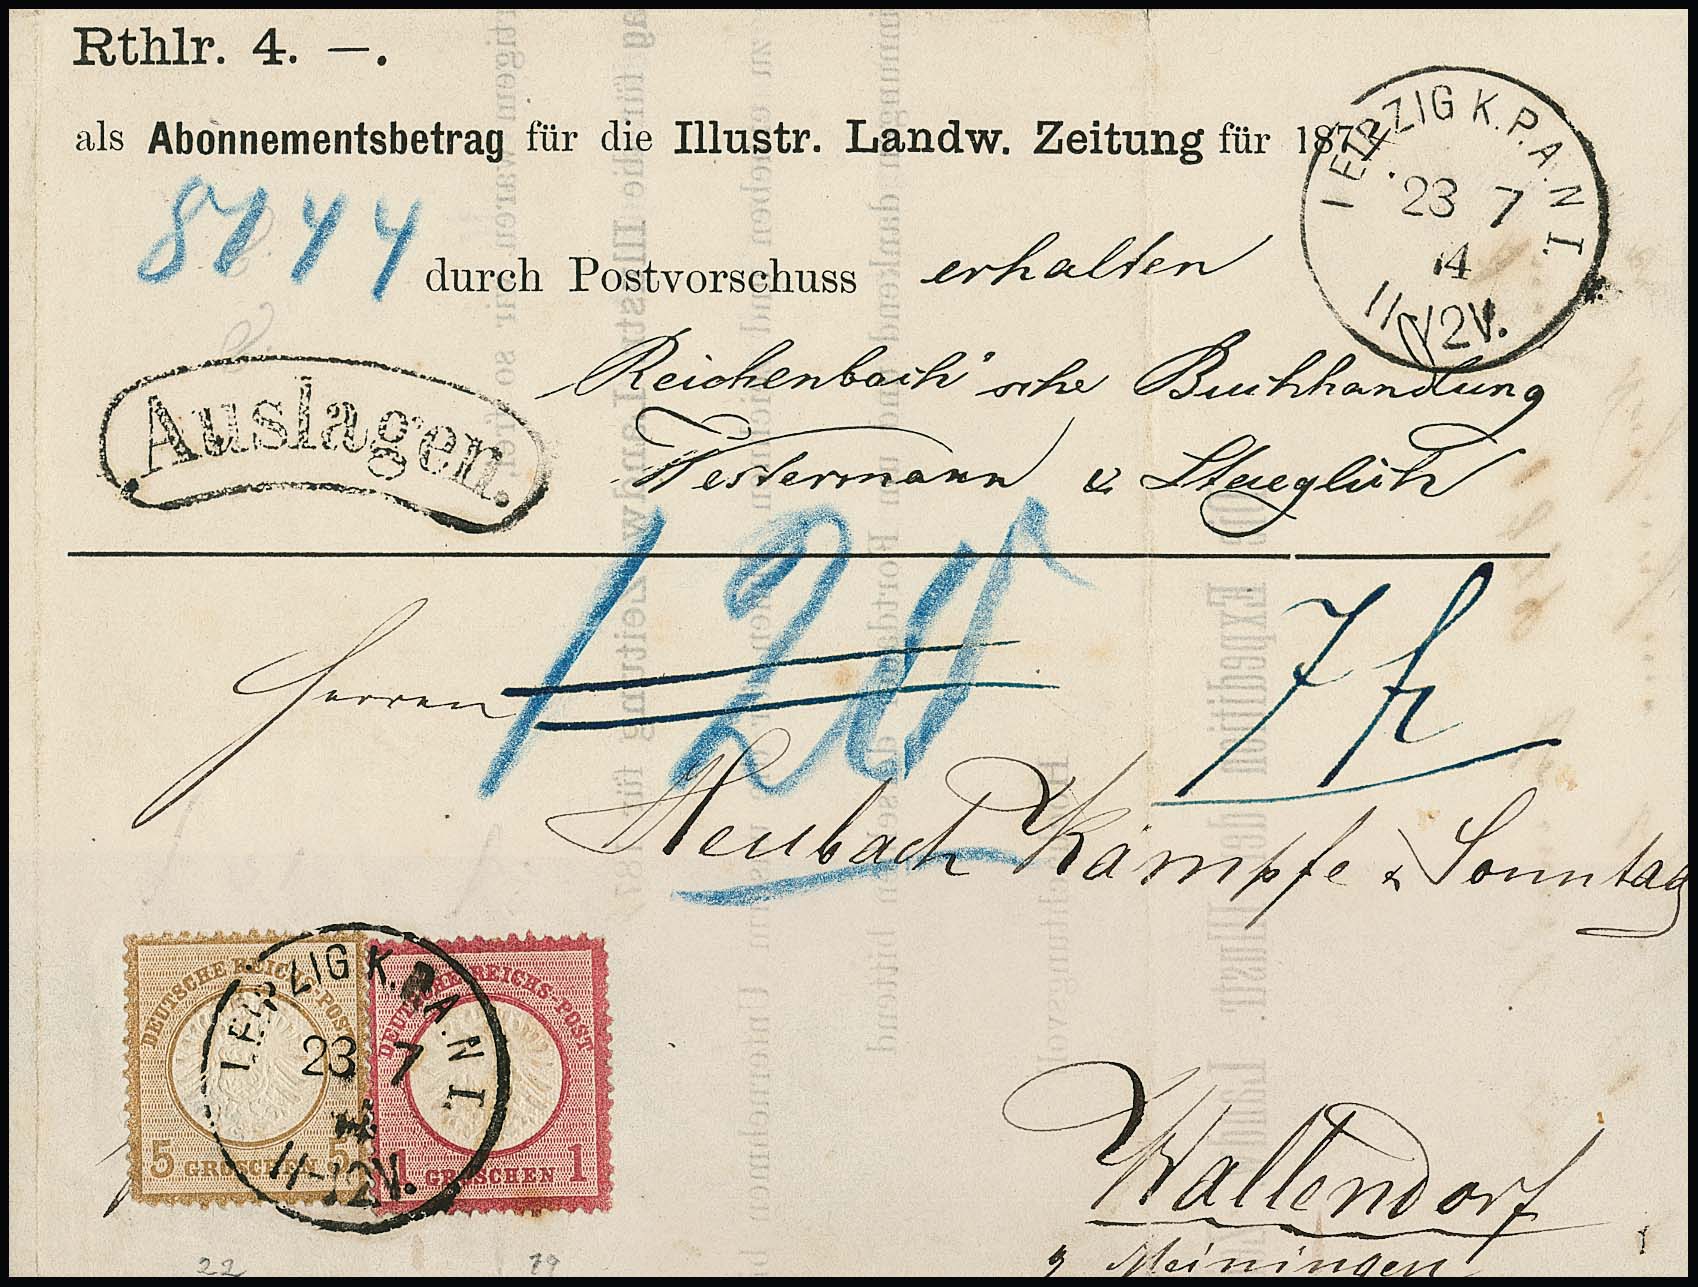 Rthlr. 4. —.
als Abonnementsbetrag für die Illustr. Landw. Zeitung für 187
LEIPZIG K.P.A. N I.
23 7
74
11-12V.
durch Postvorschuss erhalten
Auslagen.
Reichenbach'sche Buchhandlung
Westermann & Staeglich
120
7 f
Herren
Heubach Kämpfe & Sonntag
DEUTSCHE REICHS-POST
5 GROSCHEN 5
DEUTSCHE REICHS-POST
1 GROSCHEN 1
LEIPZIG K.P.A. N I.
23 7
11-12V.
Wallendorf
Meiningen
22 19